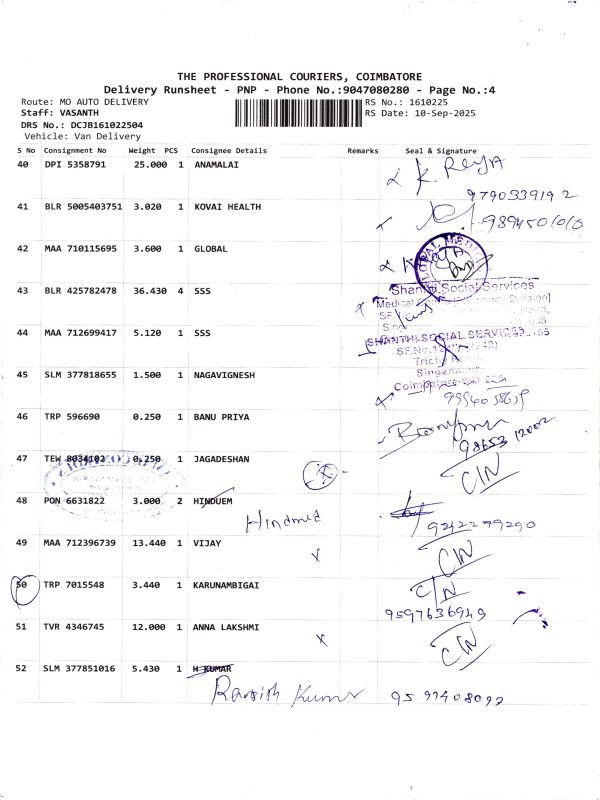 THE PROFESSIONAL COURIERS, COIMBATORE
Delivery Runsheet - PNP - Phone No.:9047080280 - Page No.:4
Route: MO AUTO DELIVERY RS No.: 1610225
Staff: VASANTH RS Date: 10-Sep-2025
DRS No.: DCJB161022504
Vehicle: Van Delivery
S No Consignment No Weight PCS Consignee Details Remarks Seal & Signature
40 DPI 5358791 25.000 1 ANAMALAI
9790339192
41 BLR 5005403751 3.020 1 KOVAI HEALTH
42 MAA 710115695 3.600 1 GLOBAL
43 BLR 425782478 36.430 4 SSS
Shanthi Social Services
44 MAA 712699417 5.120 1 SSS
SHANTHI SOCIAL SERVICES
45 SLM 377818655 1.500 1 NAGAVIGNESH
46 TRP 596690 0.250 1 BANU PRIYA
98653 12002
47 TEW 8034102 0.250 1 JAGADESHAN
CIN
48 PON 6631822 3.000 2 HINDUEM
Hindmed
9242279290
49 MAA 712396739 13.440 1 VIJAY
CIN
50 TRP 7015548 3.440 1 KARUNAMBIGAI
CIN
9597636949
51 TVR 4346745 12.000 1 ANNA LAKSHMI
CIN
52 SLM 377851016 5.430 1 H KUMAR
Ranjith Kumar